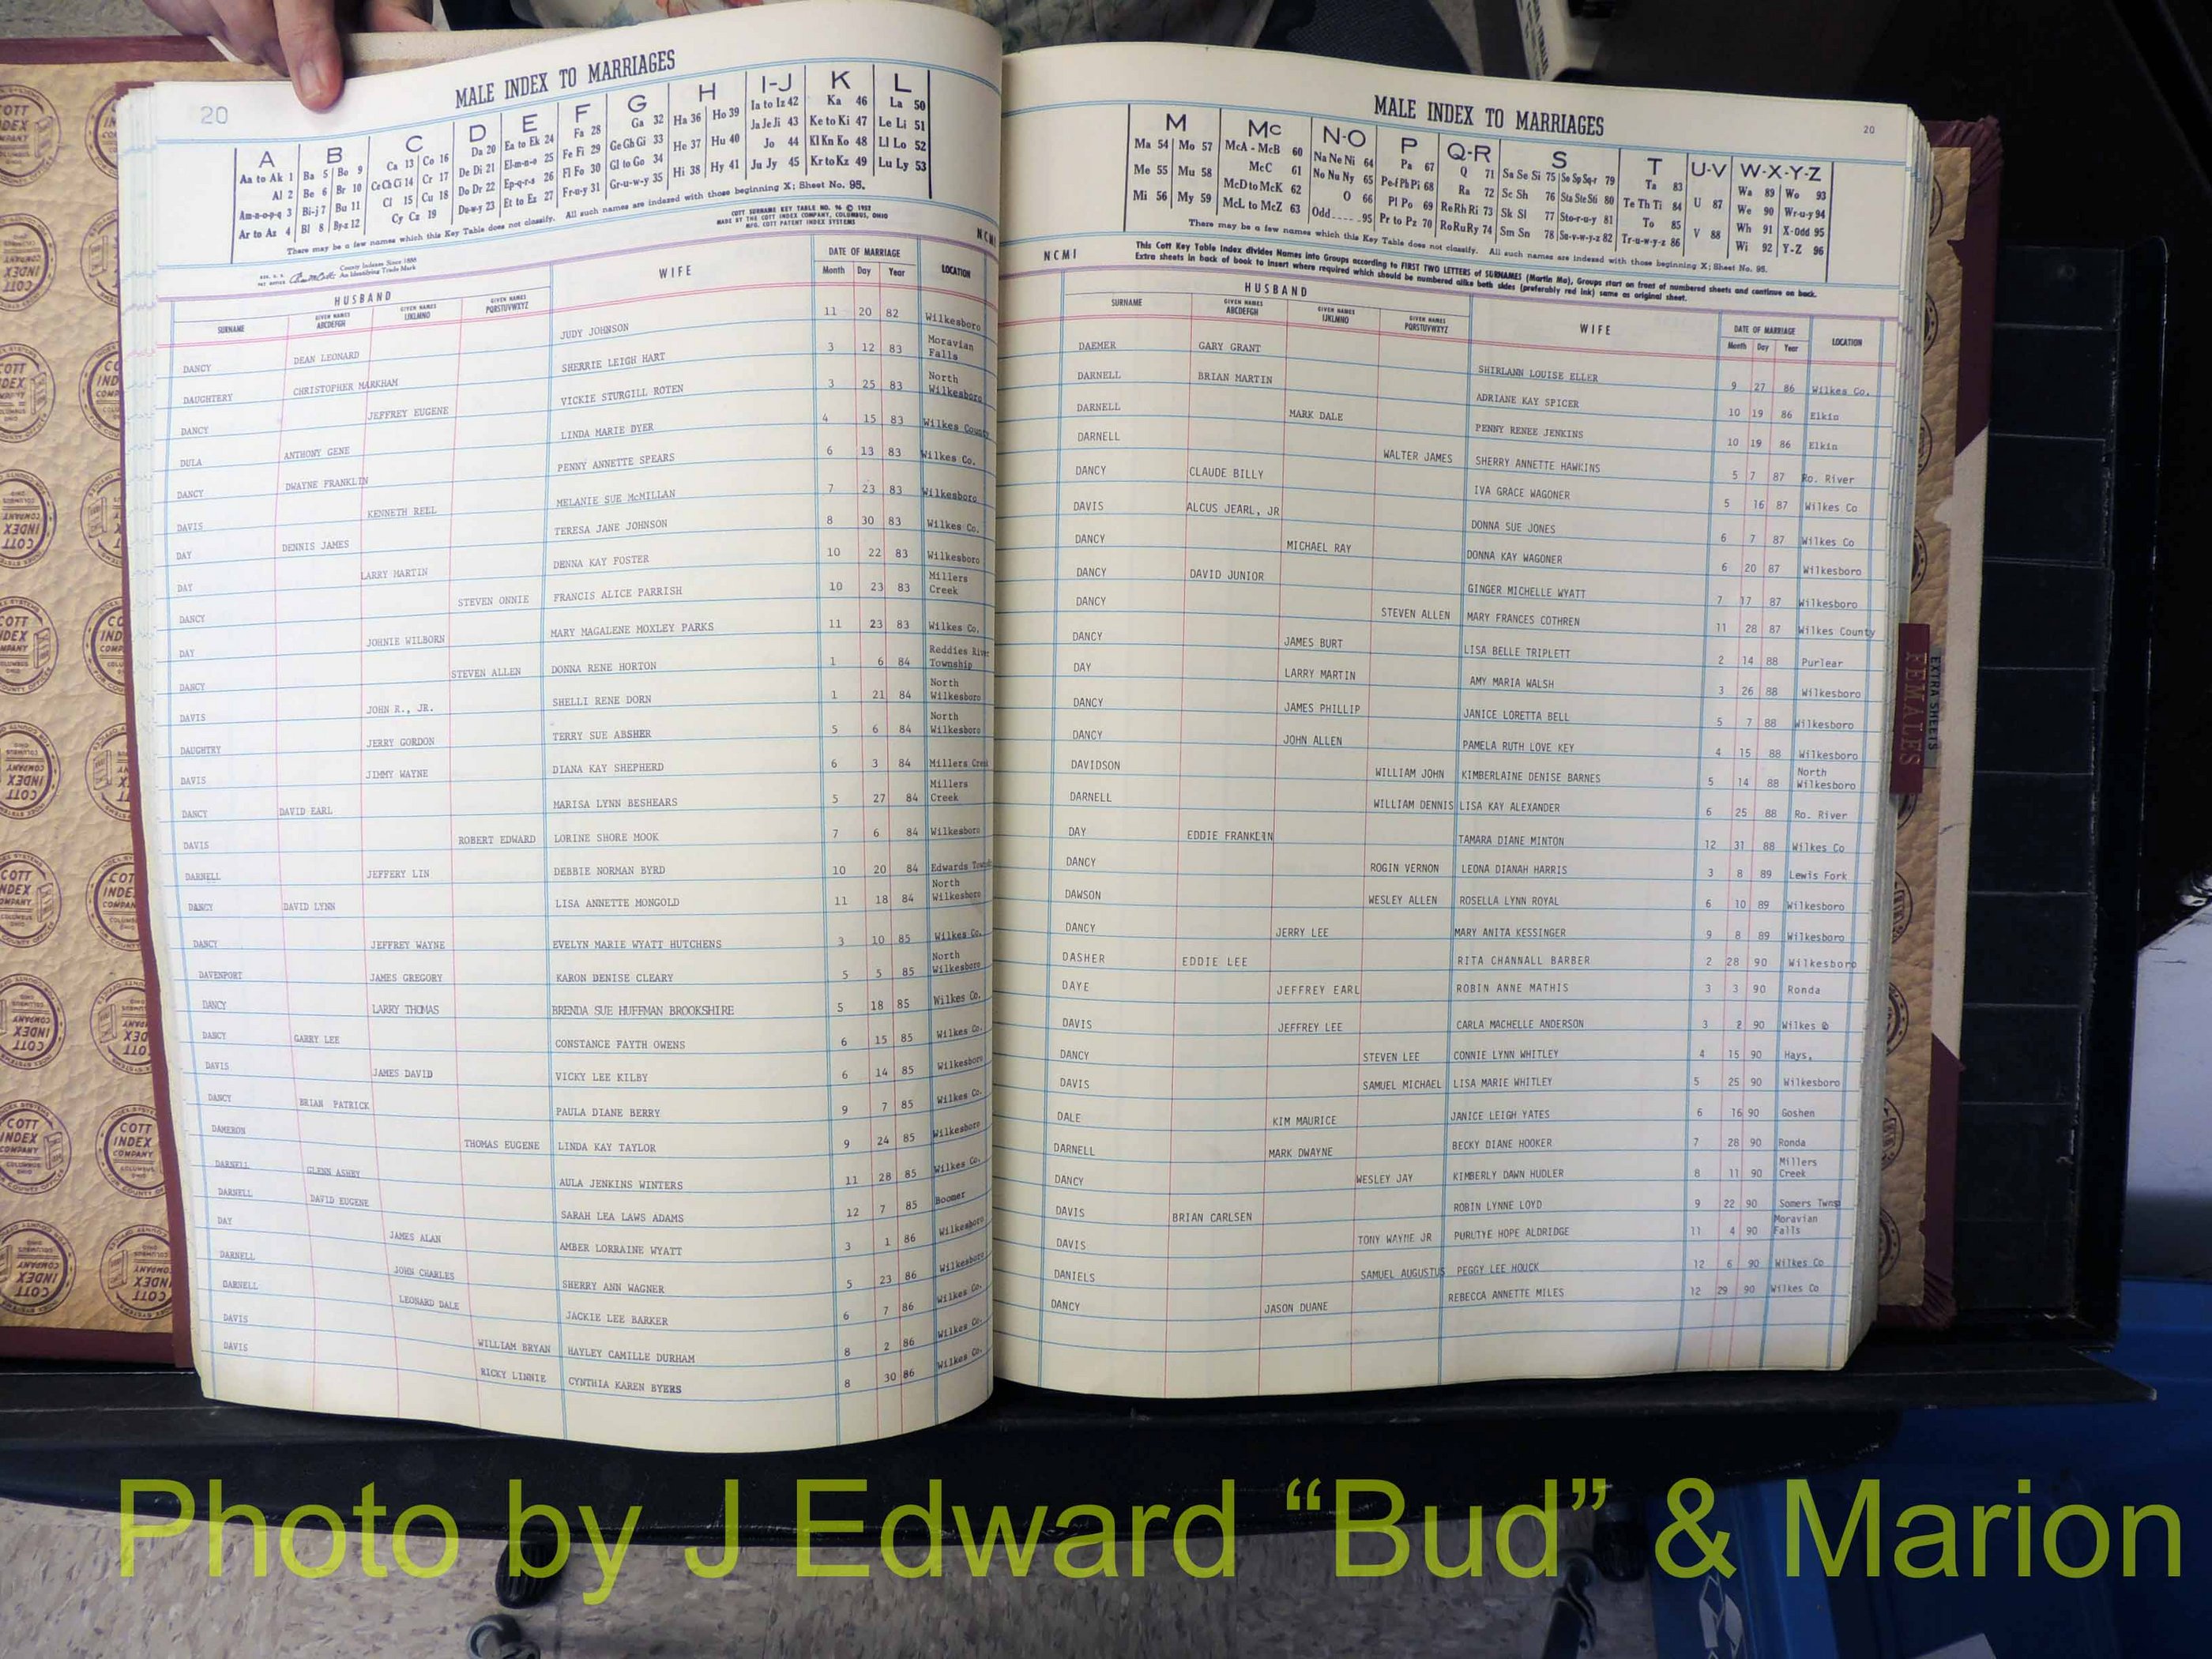 20
MALE INDEX TO MARRIAGES
A B C D E F G H I-J K L
Aa to Ak 1 Ba 5 Bo 9 Ca 13 Co 16 Da 20 Ea to Ek 24 Fa 28 Ga 32 Ha 36 Ho 39 Ia to Iz 42 Ka 46 La 50
Al 2 Be 6 Br 10 Ce Ch Ci 14 Cr 17 De Di 21 El-m-n-o 25 Fe Fi 29 Ge Gh Gi 33 He 37 Hu 40 Ja Je Ji 43 Ke to Ki 47 Le Li 51
Am-n-o-p-q 3 Bi-j 7 Bu 11 Cl 15 Cu 18 Do Dr 22 Ep-q-r-s 26 Fl Fo 30 Gl to Go 34 Hi 38 Hy 41 Jo 44 Kl Kn Ko 48 Ll Lo 52
Ar to Az 4 Bl 8 By-z 12 Cy Cz 19 Du-w-y 23 Et to Ez 27 Fr-u-y 31 Gr-u-w-y 35 Ju Jy 45 Kr to Kz 49 Lu Ly 53
There may be a few names which this Key Table does not classify. All such names are indexed with those beginning X; Sheet No. 95.
COTT SURNAME KEY TABLE NO. 96 © 1952
MADE BY THE COTT INDEX COMPANY, COLUMBUS, OHIO
MFG. COTT PATENT INDEX SYSTEMS
County Indexes Since 1888
An Identifying Trade Mark
NCMI
HUSBAND WIFE DATE OF MARRIAGE LOCATION
SURNAME GIVEN NAMES ABCDEFGH GIVEN NAMES IJKLMNO GIVEN NAMES PQRSTUVWXYZ Month Day Year
DANCY DEAN LEONARD JUDY JOHNSON 11 20 82 Wilkesboro
DAUGHTERY CHRISTOPHER MARKHAM SHERRIE LEIGH HART 3 12 83 Moravian Falls
DANCY JEFFREY EUGENE VICKIE STURGILL ROTEN 3 25 83 North Wilkesboro
DULA ANTHONY GENE LINDA MARIE DYER 4 15 83 Wilkes County
DANCY DWAYNE FRANKLIN PENNY ANNETTE SPEARS 6 13 83 Wilkes Co.
DAVIS KENNETH RELL MELANIE SUE McMILLAN 7 23 83 Wilkesboro
DAY DENNIS JAMES TERESA JANE JOHNSON 8 30 83 Wilkes Co.
DAY LARRY MARTIN DENNA KAY FOSTER 10 22 83 Wilkesboro
DANCY STEVEN ONNIE FRANCIS ALICE PARRISH 10 23 83 Millers Creek
DAY JOHNIE WILBORN MARY MAGALENE MOXLEY PARKS 11 23 83 Wilkes Co.
DANCY STEVEN ALLEN DONNA RENE HORTON 1 6 84 Reddies River Township
DAVIS JOHN R., JR. SHELLI RENE DORN 1 21 84 North Wilkesboro
DAUGHTRY JERRY GORDON TERRY SUE ABSHER 5 6 84 North Wilkesboro
DAVIS JIMMY WAYNE DIANA KAY SHEPHERD 6 3 84 Millers Creek
DANCY DAVID EARL MARISA LYNN BESHEARS 5 27 84 Millers Creek
DAVIS ROBERT EDWARD LORINE SHORE MOOK 7 6 84 Wilkesboro
DARNELL JEFFERY LIN DEBBIE NORMAN BYRD 10 20 84 Edwards
DANCY DAVID LYNN LISA ANNETTE MONGOLD 11 18 84 North Wilkesboro
DANCY JEFFREY WAYNE EVELYN MARIE WYATT HUTCHENS 3 10 85 Wilkes Co.
DAVENPORT JAMES GREGORY KARON DENISE CLEARY 5 5 85 North Wilkesboro
DANCY LARRY THOMAS BRENDA SUE HUFFMAN BROOKSHIRE 5 18 85 Wilkes Co.
DANCY GARRY LEE CONSTANCE FAYTH OWENS 6 15 85 Wilkes Co.
DAVIS JAMES DAVID VICKY LEE KILBY 6 14 85 Wilkesboro
DANCY BRIAN PATRICK PAULA DIANE BERRY 9 7 85 Wilkes Co.
DAMERON THOMAS EUGENE LINDA KAY TAYLOR 9 24 85 Wilkesboro
DARNELL GLENN ASHBY AULA JENKINS WINTERS 11 28 85 Wilkes Co.
DARNELL DAVID EUGENE SARAH LEA LAWS ADAMS 12 7 85 Boomer
DAY JAMES ALAN AMBER LORRAINE WYATT 3 1 86 Wilkesboro
DARNELL JOHN CHARLES SHERRY ANN WAGNER 5 23 86 Wilkesboro
DARNELL LEONARD DALE JACKIE LEE BARKER 6 7 86 Wilkes Co.
DAVIS WILLIAM BRYAN HAYLEY CAMILLE DURHAM 8 2 86 Wilkes Co.
DAVIS RICKY LINNIE CYNTHIA KAREN BYERS 8 30 86 Wilkes Co.
MALE INDEX TO MARRIAGES
20
M Mc N-O P Q-R S T U-V W-X-Y-Z
Ma 54 Mo 57 McA - McB 60 Na Ne Ni 64 Pa 67 Q 71 Sa Se Si 75 So Sp Sq-r 79 Ta 83 U 87 Wa 89 Wo 93
Me 55 Mu 58 McC 61 No Nu Ny 65 Pe-f Ph Pi 68 Ra 72 Sc Sh 76 Sta Ste Sti 80 Te Th Ti 84 V 88 We 90 Wr-u-y 94
Mi 56 My 59 McD to McK 62 O 66 Pl Po 69 Re Rh Ri 73 Sk Sl 77 Sto-r-u-y 81 To 85 Wh 91 X-Odd 95
McL to McZ 63 Odd 95 Pr to Pz 70 Ro Ru Ry 74 Sm Sn 78 Su-v-w-y-z 82 Tr-u-w-y-z 86 Wi 92 Y-Z 96
There may be a few names which this Key Table does not classify. All such names are indexed with those beginning X; Sheet No. 95.
NCMI
This Cott Key Table Index divides Names into Groups according to FIRST TWO LETTERS of SURNAMES (Martin Ma), Groups start on front of numbered sheets and continue on back.
Extra sheets in back of book to insert where required which should be numbered alike both sides (preferably red ink) same as original sheet.
HUSBAND WIFE DATE OF MARRIAGE LOCATION
SURNAME GIVEN NAMES ABCDEFGH GIVEN NAMES IJKLMNO GIVEN NAMES PQRSTUVWXYZ Month Day Year
DAEMER GARY GRANT SHIRLANN LOUISE ELLER 9 27 86 Wilkes Co.
DARNELL BRIAN MARTIN ADRIANE KAY SPICER 10 19 86 Elkin
DARNELL MARK DALE PENNY RENEE JENKINS 10 19 86 Elkin
DARNELL WALTER JAMES SHERRY ANNETTE HAWKINS 5 7 87 Ro. River
DANCY CLAUDE BILLY IVA GRACE WAGONER 5 16 87 Wilkes Co
DAVIS ALCUS JEARL, JR DONNA SUE JONES 6 7 87 Wilkes Co
DANCY MICHAEL RAY DONNA KAY WAGONER 6 20 87 Wilkesboro
DANCY DAVID JUNIOR GINGER MICHELLE WYATT 7 17 87 Wilkesboro
DANCY STEVEN ALLEN MARY FRANCES COTHREN 11 28 87 Wilkes County
DANCY JAMES BURT LISA BELLE TRIPLETT 2 14 88 Purlear
DAY LARRY MARTIN AMY MARIA WALSH 3 26 88 Wilkesboro
DANCY JAMES PHILLIP JANICE LORETTA BELL 5 7 88 Wilkesboro
DANCY JOHN ALLEN PAMELA RUTH LOVE KEY 4 15 88 Wilkesboro
DAVIDSON WILLIAM JOHN KIMBERLAINE DENISE BARNES 5 14 88 North Wilkesboro
DARNELL WILLIAM DENNIS LISA KAY ALEXANDER 6 25 88 Ro. River
DAY EDDIE FRANKLIN TAMARA DIANE MINTON 12 31 88 Wilkes Co
DANCY ROGIN VERNON LEONA DIANAH HARRIS 3 8 89 Lewis Fork
DAWSON WESLEY ALLEN ROSELLA LYNN ROYAL 6 10 89 Wilkesboro
DANCY JERRY LEE MARY ANITA KESSINGER 9 8 89 Wilkesboro
DASHER EDDIE LEE RITA CHANNALL BARBER 2 28 90 Wilkesboro
DAYE JEFFREY EARL ROBIN ANNE MATHIS 3 3 90 Ronda
DAVIS JEFFREY LEE CARLA MACHELLE ANDERSON 3 2 90 Wilkes
DANCY STEVEN LEE CONNIE LYNN WHITLEY 4 15 90 Hays,
DAVIS SAMUEL MICHAEL LISA MARIE WHITLEY 5 25 90 Wilkesboro
DALE KIM MAURICE JANICE LEIGH YATES 6 16 90 Goshen
DARNELL MARK DWAYNE BECKY DIANE HOOKER 7 28 90 Ronda
DANCY WESLEY JAY KIMBERLY DAWN HUDLER 8 11 90 Millers Creek
DAVIS BRIAN CARLSEN ROBIN LYNNE LOYD 9 22 90 Somers Twnsp
DAVIS TONY WAYNE JR PURUTYE HOPE ALDRIDGE 11 4 90 Moravian Falls
DANIELS SAMUEL AUGUSTUS PEGGY LEE HOUCK 12 6 90 Wilkes Co
DANCY JASON DUANE REBECCA ANNETTE MILES 12 29 90 Wilkes Co
EXTRA SHEETS
FEMALES
Photo by J Edward “Bud” & Marion